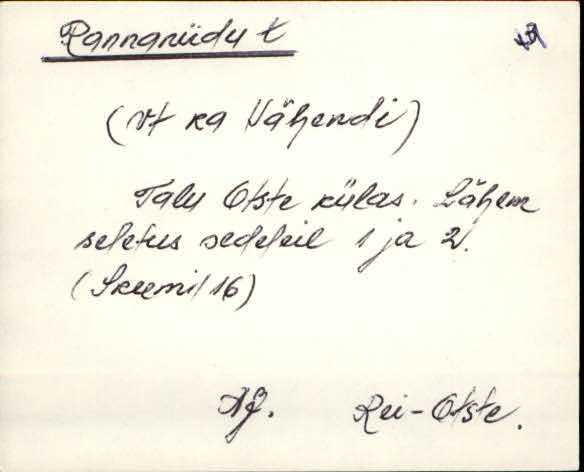 Rannaniidu t
(vt ka Vähendi)
Talu Otste külas. Lähem
seletus sedeleil 1 ja 2.
(Skeemil 16)
Rei-Otste.